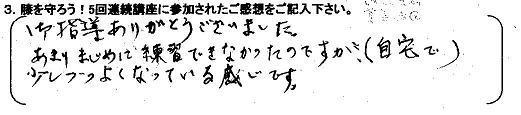 3. 膝を守ろう！5回連続講座に参加されたご感想をご記入下さい。
御指導ありがとうございました。
あまりまじめに練習できなかったのですが、(自宅で)
少しづつよくなっている感じです。